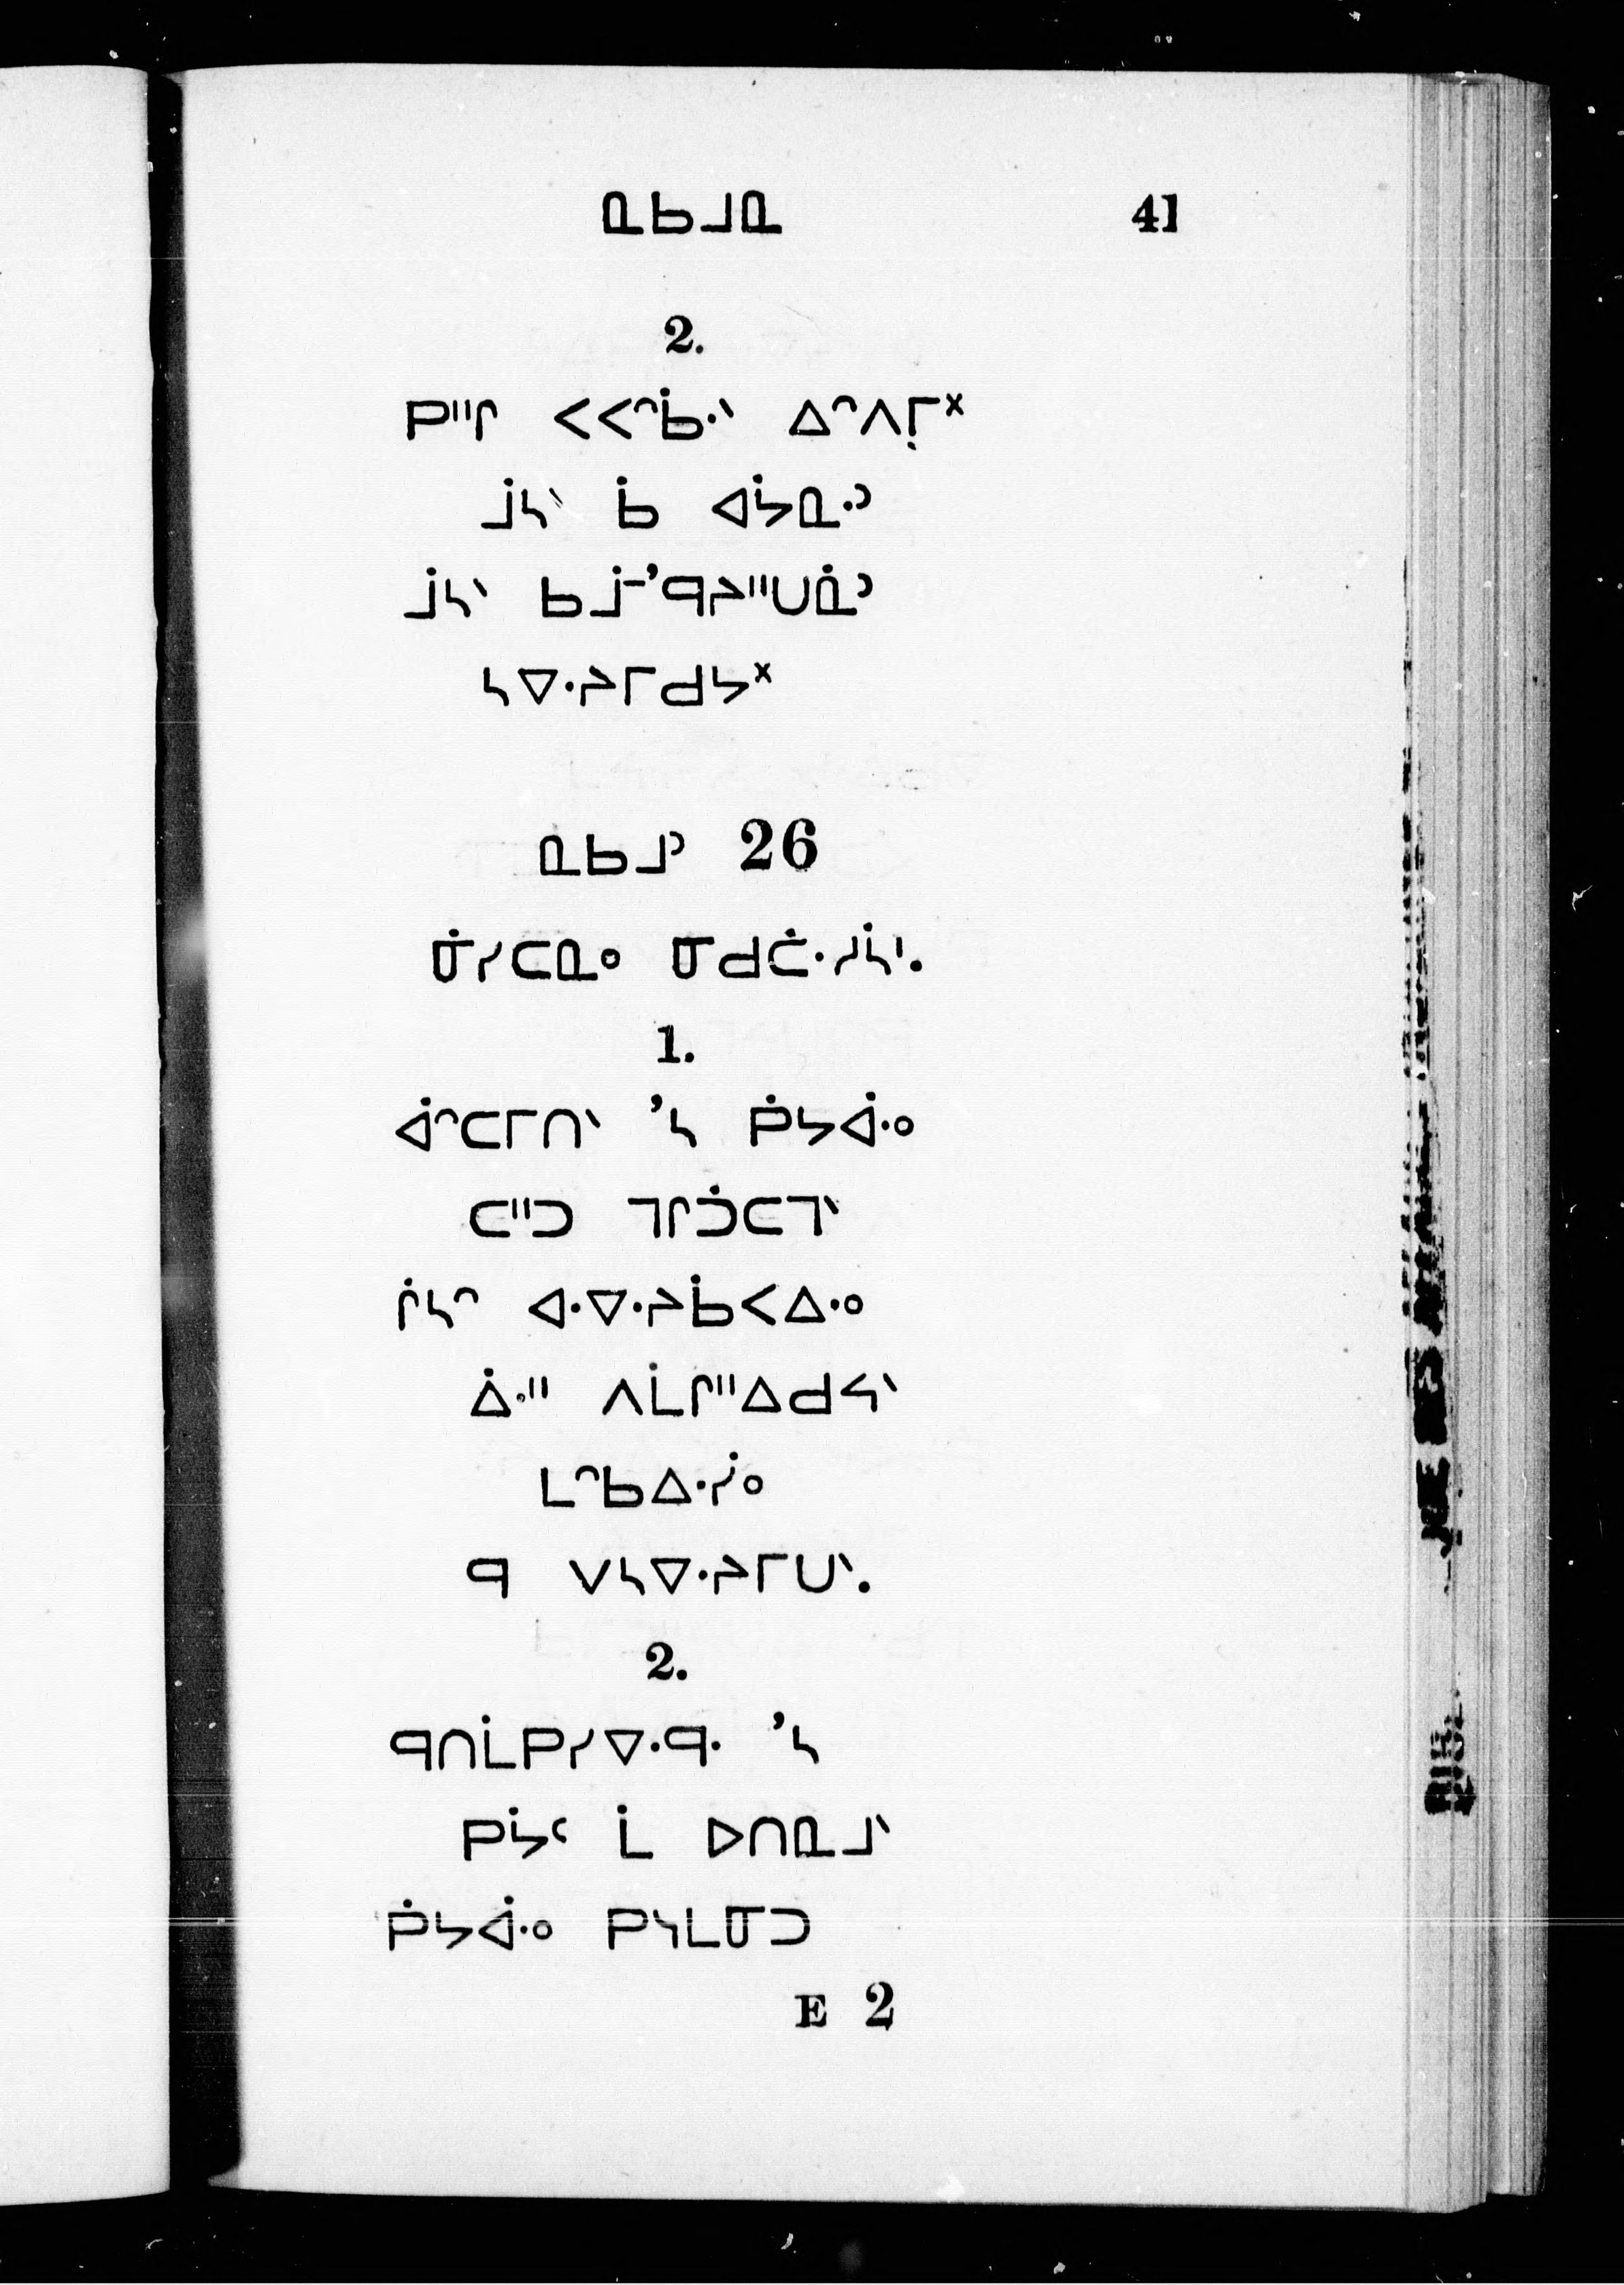 ᓇᑲᒧᓇ 41
2.
ᑭᐦᒋ ᐸᐸᐢᑳᐧᐠ ᐃᐢᐱᒥᕽ
ᒨᓴᐠ ᑳ ᐊᔮᓇᐧᐣ
ᒨᓴᐠ ᑲᒨ-ʼᑫᔨᐦᑌᓈᐣ
ᓴᐁᐧᔨᒥᑯᔭᕽ
ᓇᑲᒧᐣ 26
ᓃᓯᑕᓇᐤ ᓂᑯᑖᐧᓱᓵᑊ.
1.
ᐋᐢᑕᒥᑎᐠ ʼᓴ ᑮᔭᐋᐧᐤ
ᑕᐦᑐ ᒣᒋᑑᑕᒣᐠ
ᒌᓴᐢ ᐊᐧᐁᐧᔨᑳᐸᐃᐧᐤ
ᐄᐧᐦ ᐱᒫᒋᐦᐃᑯᔦᐠ
ᒪᐢᑲᐃᐧᓰᐤ
ᑫ ᐯᓴᐁᐧᔨᒥᑌᐠ.
2.
ᑫᑎᒫᑭᓯᐁᐧᑫᐧ ʼᓴ
ᑭᔮᑦ ᒫ ᐅᑎᓇᒧᐠ
ᑮᔭᐋᐧᐤ ᑭᓭᒪᓂᑐ
E 2